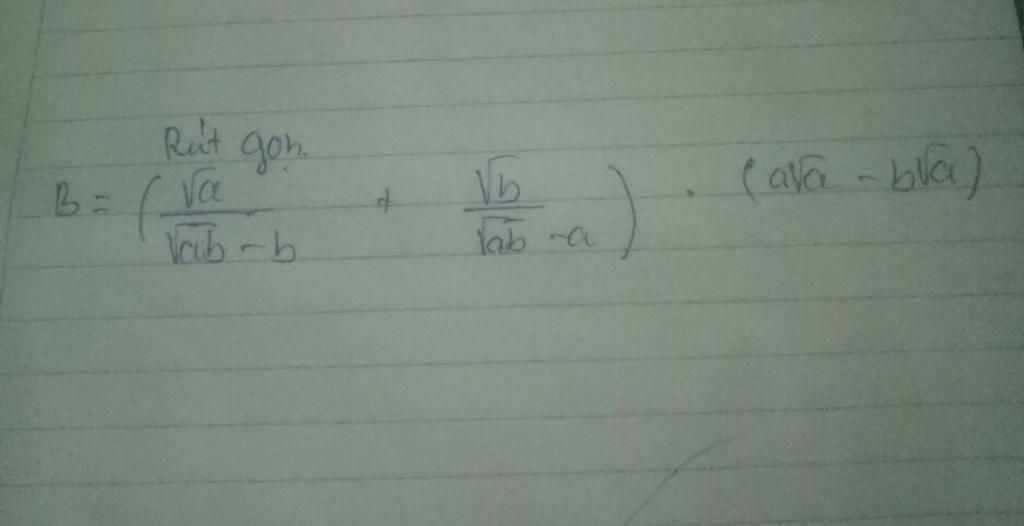 Rút gọn.
B = (√a / (√ab - b) + √b / (√ab - a)) . (a√a - b√a)